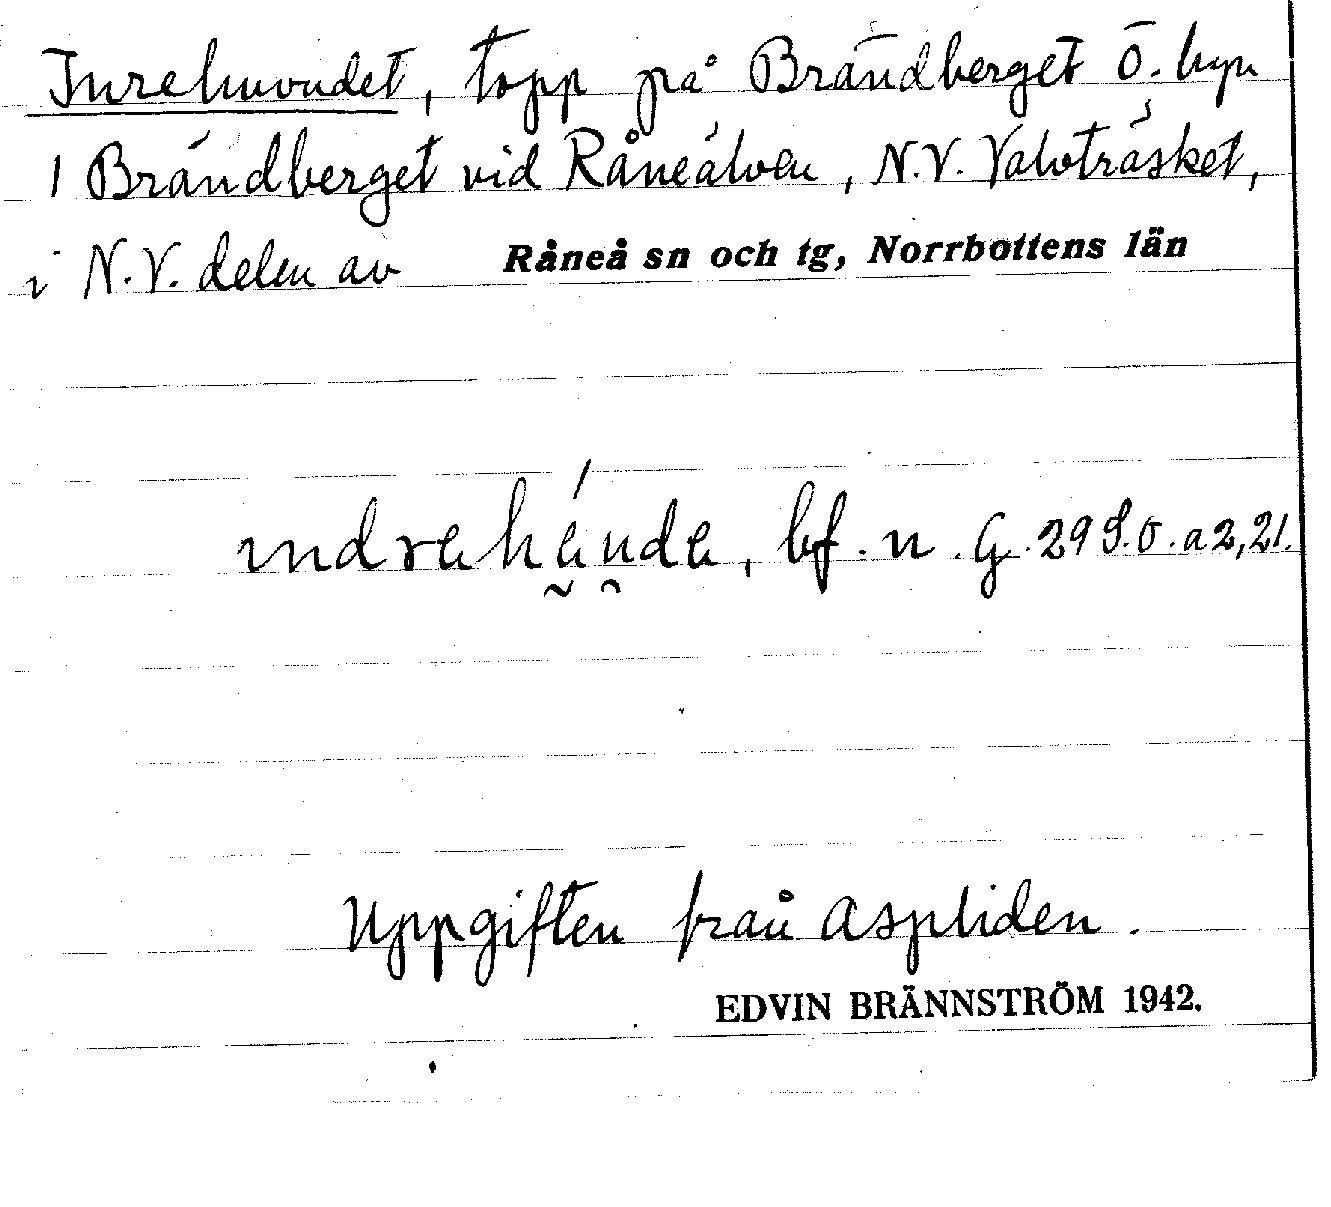 Inrehuvudet, topp på Brändberget Ö. byn
1 Brändberget vid Råneälven, N.V. Valvträsket,
i N.V. delen av Råneå sn och tg, Norrbottens län
bf. n. G. 29 S.O. a 2, 21.
Uppgiften från Aspliden.
EDVIN BRÄNNSTRÖM 1942.